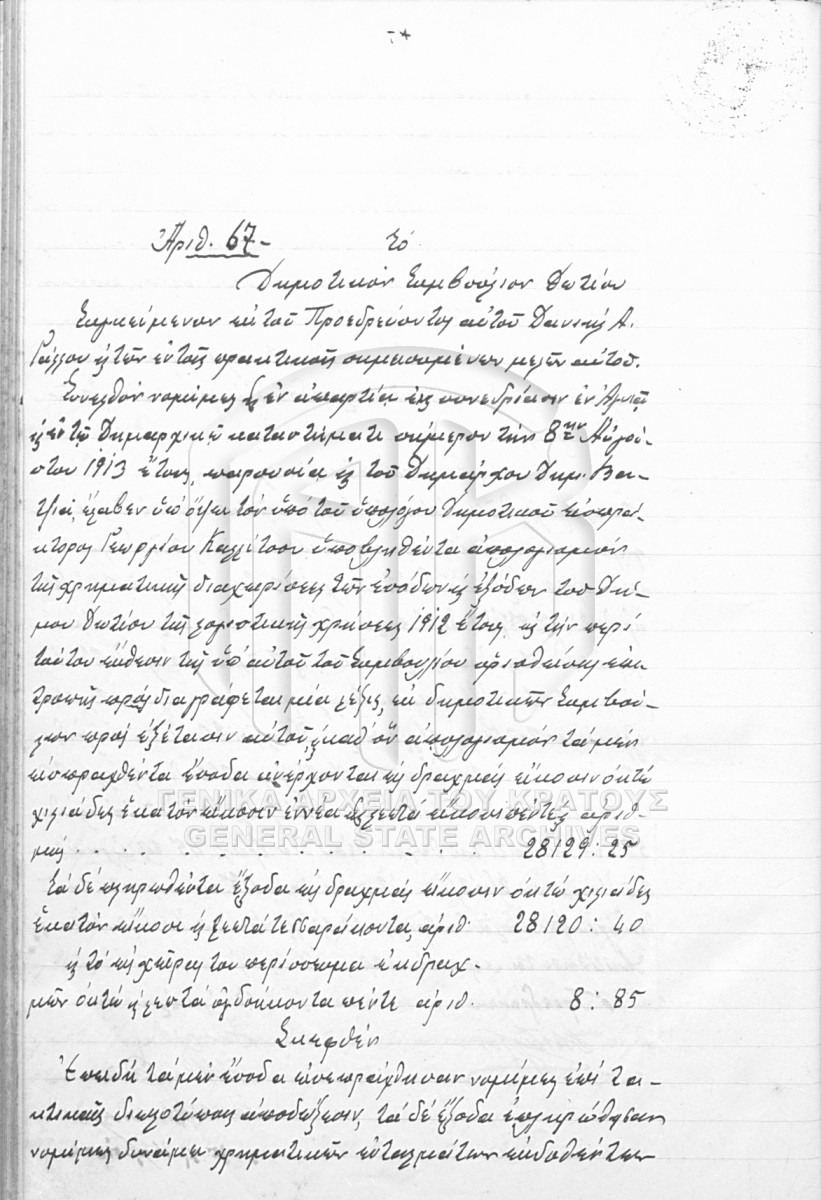 Ἀριθ. 67- Τό
Δημοτικὸν Συμβούλιον Δωτίου
Συγκείμενον ἐκ τοῦ Προεδρεύοντος αὐτοῦ Δανιὴλ Α.
Γάλλου κ τῶν ἐν τοῖς πρακτικοῖς σημειουμένων μελῶν αὐτοῦ.
Συνελθὸν νομίμως κ ἐν ἀπαρτίᾳ εἰς συνεδρίασιν ἐν Ἁγιᾷ
κ ἐν τῷ Δημαρχικῷ καταστήματι σήμερον τὴν 8ην Αὐγού-
στου 1913 ἔτους, παρουσίᾳ κ τοῦ Δημάρχου Δημ. Βα-
τζιᾶ, ἔλαβεν ὑπ' ὄψει τὸν ὑπὸ τοῦ ὑπολόγου Δημοτικοῦ εἰσπρά-
κτορος Γεωργίου Καλλίτσου ὑποβληθέντα ἀπολογισμὸν
τῆς χρηματικῆς διαχειρίσεως τῶν ἐσόδων κ ἐξόδων τοῦ Δή-
μου Δωτίου τῆς λογιστικῆς χρήσεως 1912 ἔτους, κ τὴν περὶ
τούτου ἔκθεσιν τῆς ὑπ' αὐτοῦ τοῦ Συμβουλίου ὁρισθείσης ἐπι
τροπῆς πρὸς διαγράφεται μία λέξις, ἐκ δημοτικῶν Συμβού-
λων πρὸς ἐξέτασιν αὐτοῦ, κ καθ' ὃν ἀπολογισμὸν τὰ μὲν
εἰσπραχθέντα ἔσοδα ἀνέρχονται εἰς δραχμὰς εἴκοσιν ὀκτὼ
χιλιάδες ἑκατὸν εἴκοσιν ἐννέα κ λεπτὰ εἴκοσι πέντε, ἀριθ-
μὸς . . . . . . . . . . . 28129: 25
τὰ δὲ πληρωθέντα ἔξοδα εἰς δραχμὰς εἴκοσιν ὀκτὼ χιλιάδες
ἑκατὸν εἴκοσι κ λεπτὰ τεσσαράκοντα, ἀριθ. 28120: 40
κ τὸ εἰς χεῖρας του περίσσευμα ἐκ δραχ-
μῶν ὀκτὼ κ λεπτὰ ὀγδοήκοντα πέντε ἀριθ. 8: 85
Σκεφθὲν
Ἐπειδὴ τὰ μὲν ἔσοδα εἰσεπράχθησαν νομίμως ἐπὶ τα-
κτικαῖς διπλοτύποις ἀποδείξεσιν, τὰ δὲ ἔξοδα ἐπληρώθησαν
νομίμως δυνάμει χρηματικῶν ἐνταλμάτων ἐκδοθέντων
ΓΕΝΙΚΑ ΑΡΧΕΙΑ ΤΟΥ ΚΡΑΤΟΥΣ
GENERAL STATE ARCHIVES